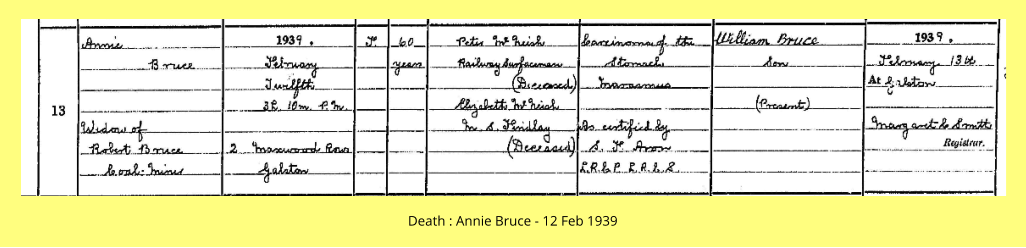 13
Annie
Bruce
Widow of
Robert Bruce
Coal-Miner
1939.
February
Twelfth
3h. 10m. P.M.
2 Maxwood Row
Galston
F.
60
years
Peter McNeish
Railway Surfaceman
(Deceased)
Elizabeth McNeish
M. S. Findlay
(Deceased)
Carcinoma of the
Stomach
Marasmus
As certified by
L.R.C.P. L.R.C.S.
William Bruce
Son
(Present)
1939.
February 13th
At Galston
Margaret C Smith
Registrar.
Death : Annie Bruce - 12 Feb 1939